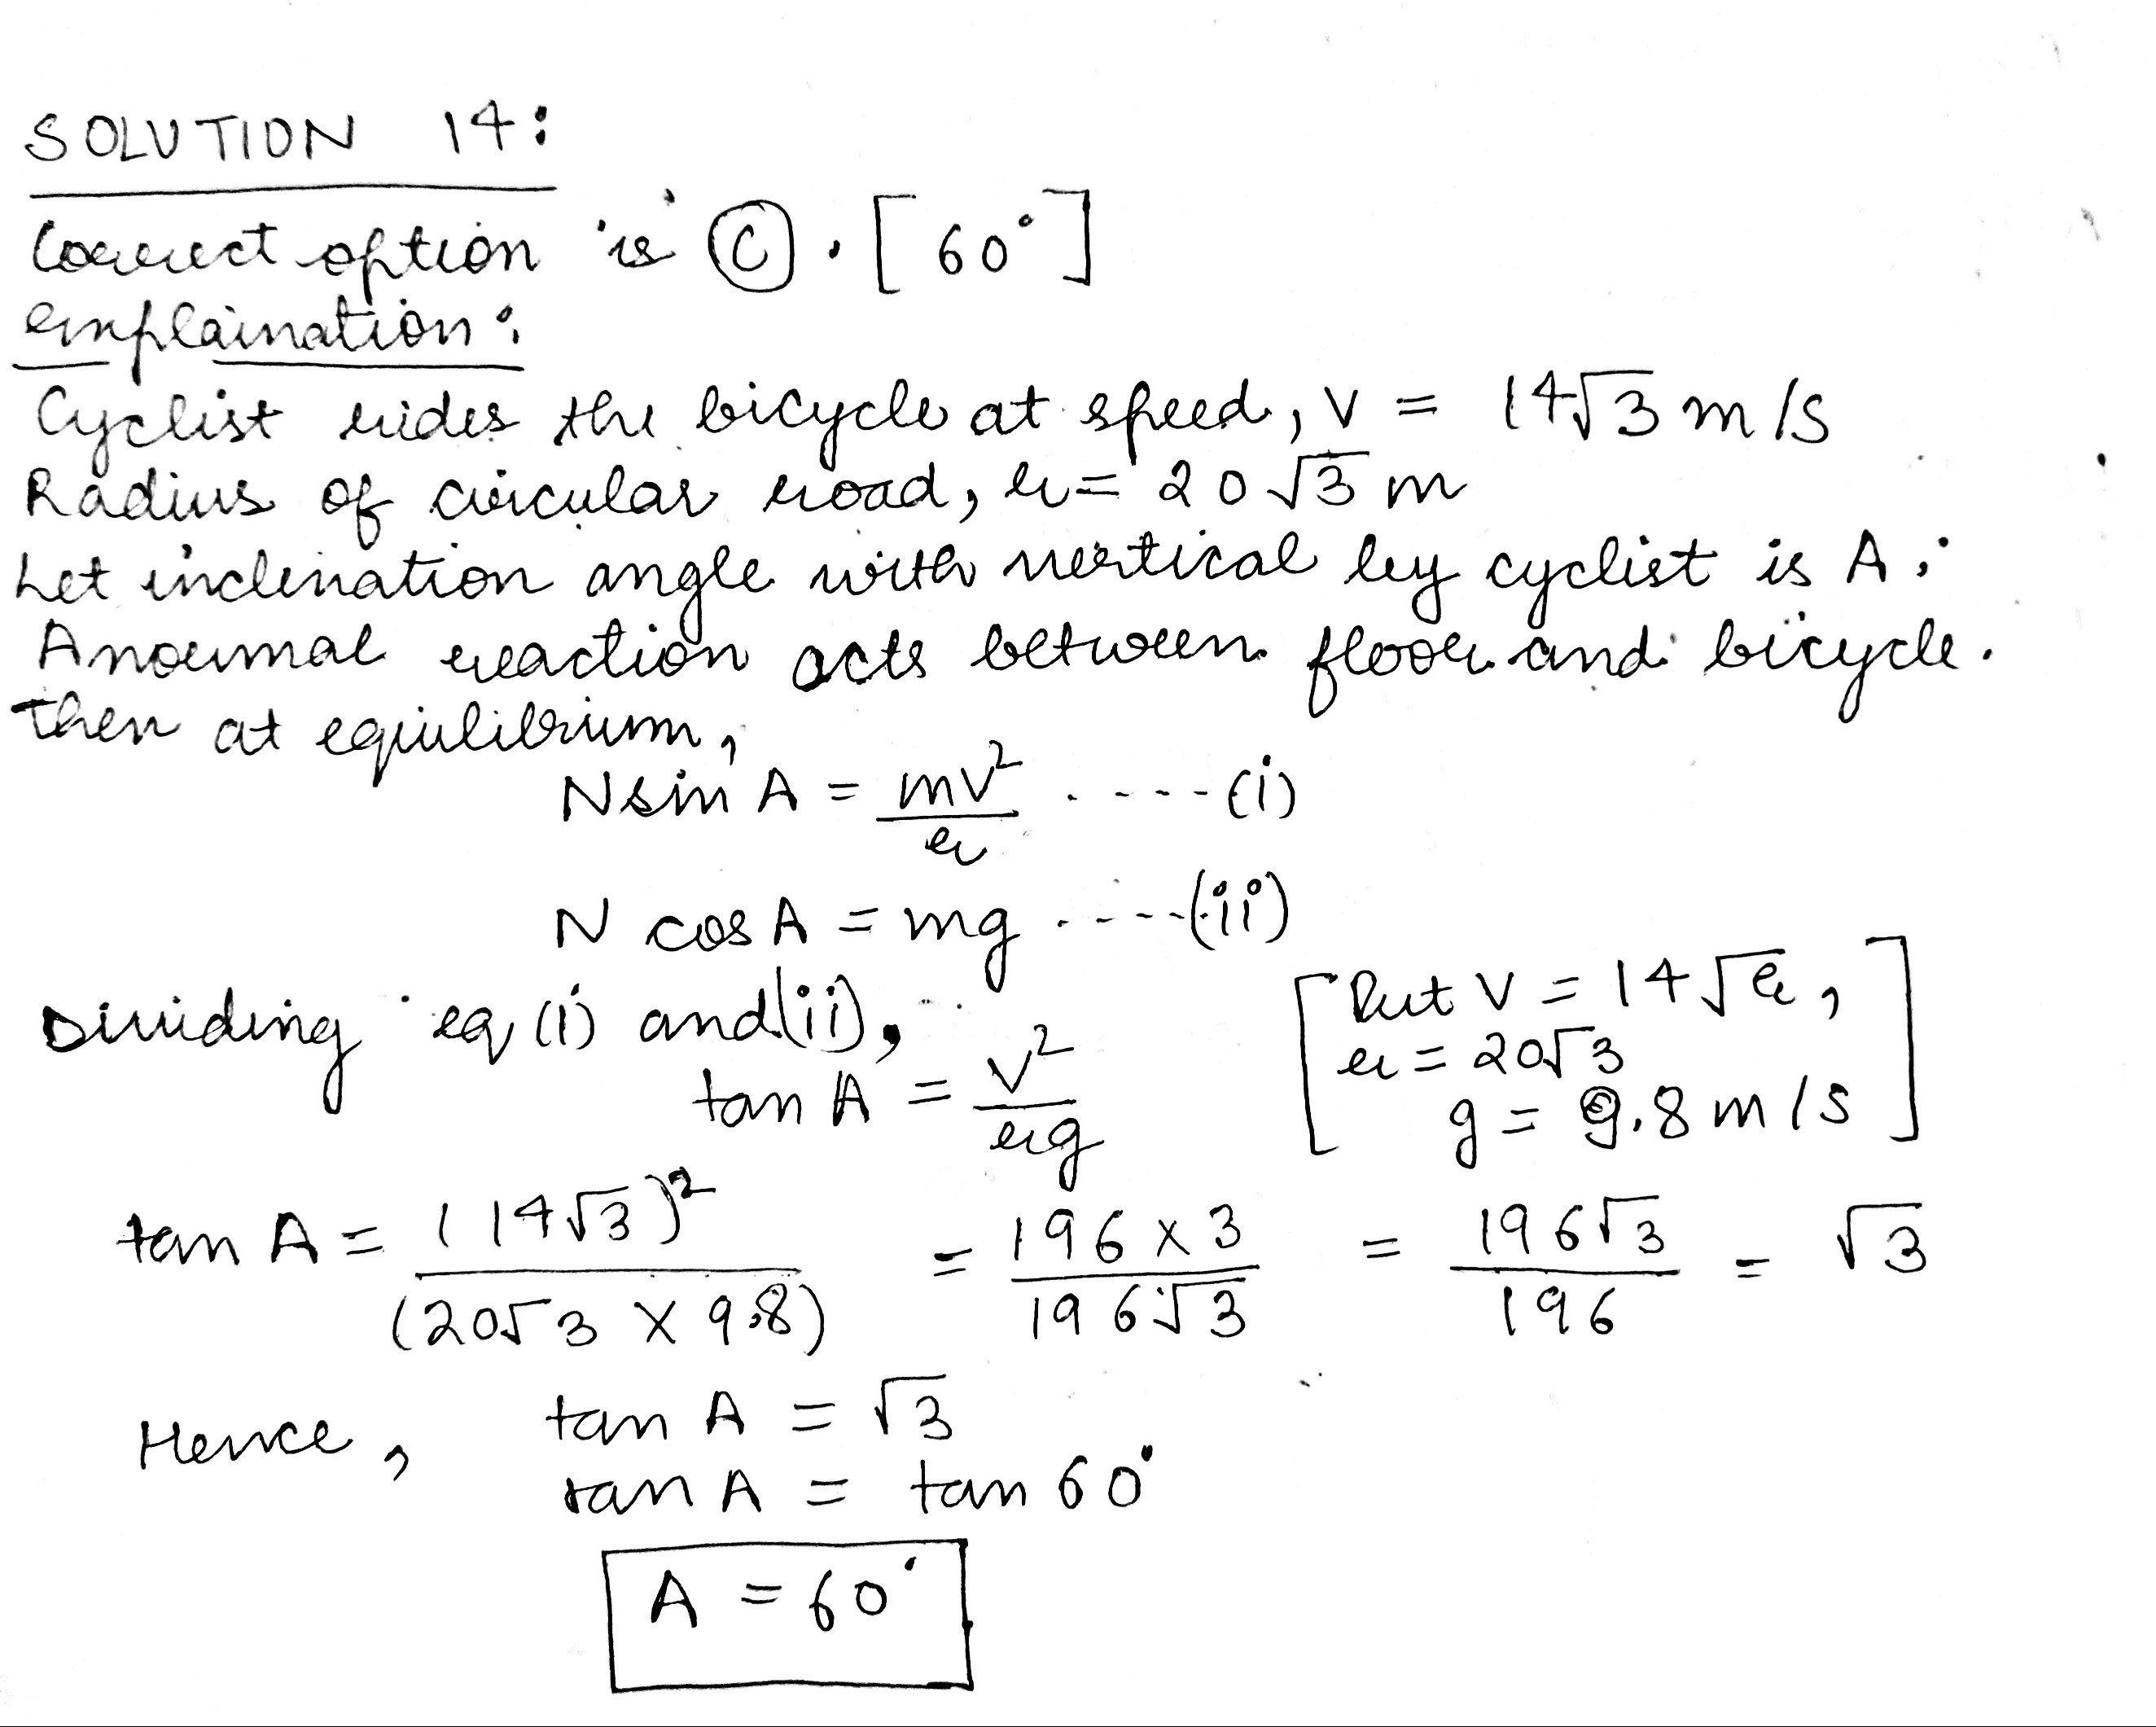 SOLUTION 14:
Correct option is (C). [60°]
Explaination:
Cyclist rides the bicycle at speed, V = 14√3 m/s
Radius of circular road, r = 20√3 m
Let inclination angle with vertical by cyclist is A.
A normal reaction acts between floor and bicycle.
Then at equilibrium,
N sin A = mv²/r .....(i)
N cos A = mg .....(ii)
Dividing eq (i) and (ii),
tan A = v²/rg
[Put V = 14√3,
r = 20√3
g = 9.8 m/s]
tan A = (14√3)²/(20√3 × 9.8) = 196 × 3/196√3 = 196√3/196 = √3
Hence, tan A = √3
tan A = tan 60°
A = 60°